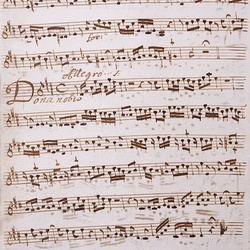 for:
Allegro
Dona nobis